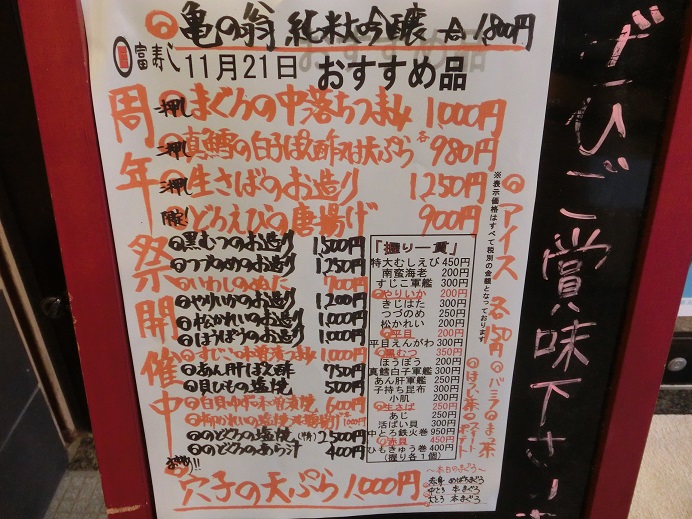 亀の翁 純米大吟醸 一合 1,800円
富寿し 11月21日 おすすめ品
周年祭開催中
一押し まぐろの中落ちつまみ 1,000円
一押し 真鱈の白子ぽん酢又は天ぷら 各980円
一押し 生さばのお造り 1250円
どろえびの唐揚げ 900円
黒むつのお造り 1,500円
つづめのお造り 1,250円
いわしのぬた 700円
やりいかのお造り 1,200円
松かれいのお造り 1,000円
ほうぼうのお造り 1,000円
すじこの味噌漬つまみ 1000円
あん肝ぽん酢 750円
貝ひもの塩焼 500円
白貝ゆず味噌焼 600円
柳かれいの塩焼又は唐揚げ
のどぐろの塩焼 2,500円
のどぐろのあら汁 400円
穴子の天ぷら 1,000円
「握り一貫」
特大むしえび 450円
南蛮海老 200円
すじこ軍艦 300円
やりいか 200円
きじはた 300円
つづのめ 250円
松かれい 200円
平目 200円
平目えんがわ 300円
黒むつ 350円
ほうぼう 200円
真鱈白子軍艦 300円
あん肝軍艦 250円
子持ち昆布 300円
小肌 200円
生さば 250円
あじ 250円
活ばい貝 300円
中とろ鉄火巻 950円
赤貝 450円
ひもきゅう巻 400円
(握り各1個)
※表示価格はすべて税別の金額となっております。
アイス 各150円
バニラ
まっ茶
ほうじ茶
〜本日のまぐろ〜
赤身 めばちまぐろ
中とろ 本まぐろ
大とろ 本まぐろ
ぜひご賞味下さい